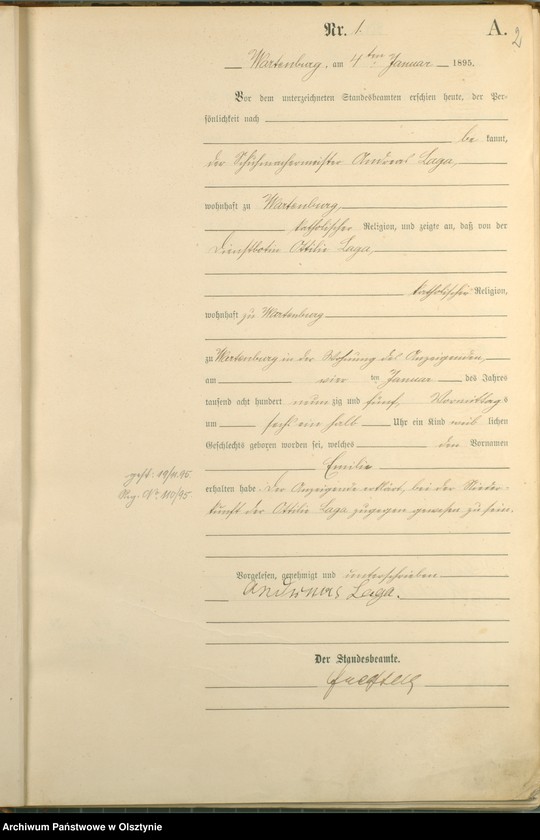 Nr. 1.
A.
2
Wartenburg, am 4ten Januar 1895.
Vor dem unterzeichneten Standesbeamten erschien heute, der Per-
sönlichkeit nach
be kannt,
der Schuhmachermeister Andreas Laga,
wohnhaft zu Wartenburg,
katholischer Religion, und zeigte an, daß von der
Dienstbotin Ottilie Laga,
katholischer Religion,
wohnhaft zu Wartenburg
zu Wartenburg in der Wohnung des Anzeigenden,
am vier ten Januar des Jahres
tausend acht hundert neun zig und fünf, Vormittags
um sechs ein halb Uhr ein Kind weib lichen
Geschlechts geboren worden sei, welches den Vornamen
Emilie
erhalten habe. Der Anzeigende erklärt, bei der Nieder-
kunft der Ottilie Laga zugegen gewesen zu sein.
gest. 19/11.95.
Reg. No 110/95
Vorgelesen, genehmigt und unterschrieben
Andreas Laga.
Der Standesbeamte.
Archiwum Państwowe w Olsztynie